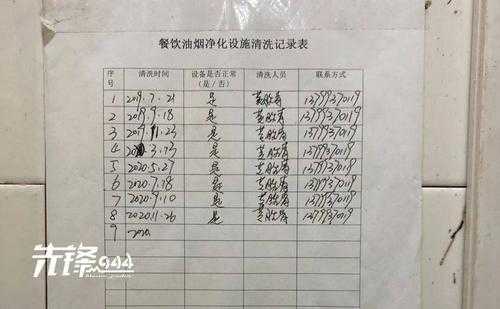 餐饮油烟净化设施清洗记录表
序号 清洗时间 设备是否正常（是/否） 清洗人员 联系方式
1 2019.7.21 是 13799370119
2 2019.9.18 是 13799370119
3 2019.11.23 是 13799370119
4 是 13799370119
5 2020.5.27 是 13799370119
6 2020.7.18 是 13799370119
7 2020.9.10 是 13799370119
8 2020.11.26 是 13799370119
9 2020.
先锋944